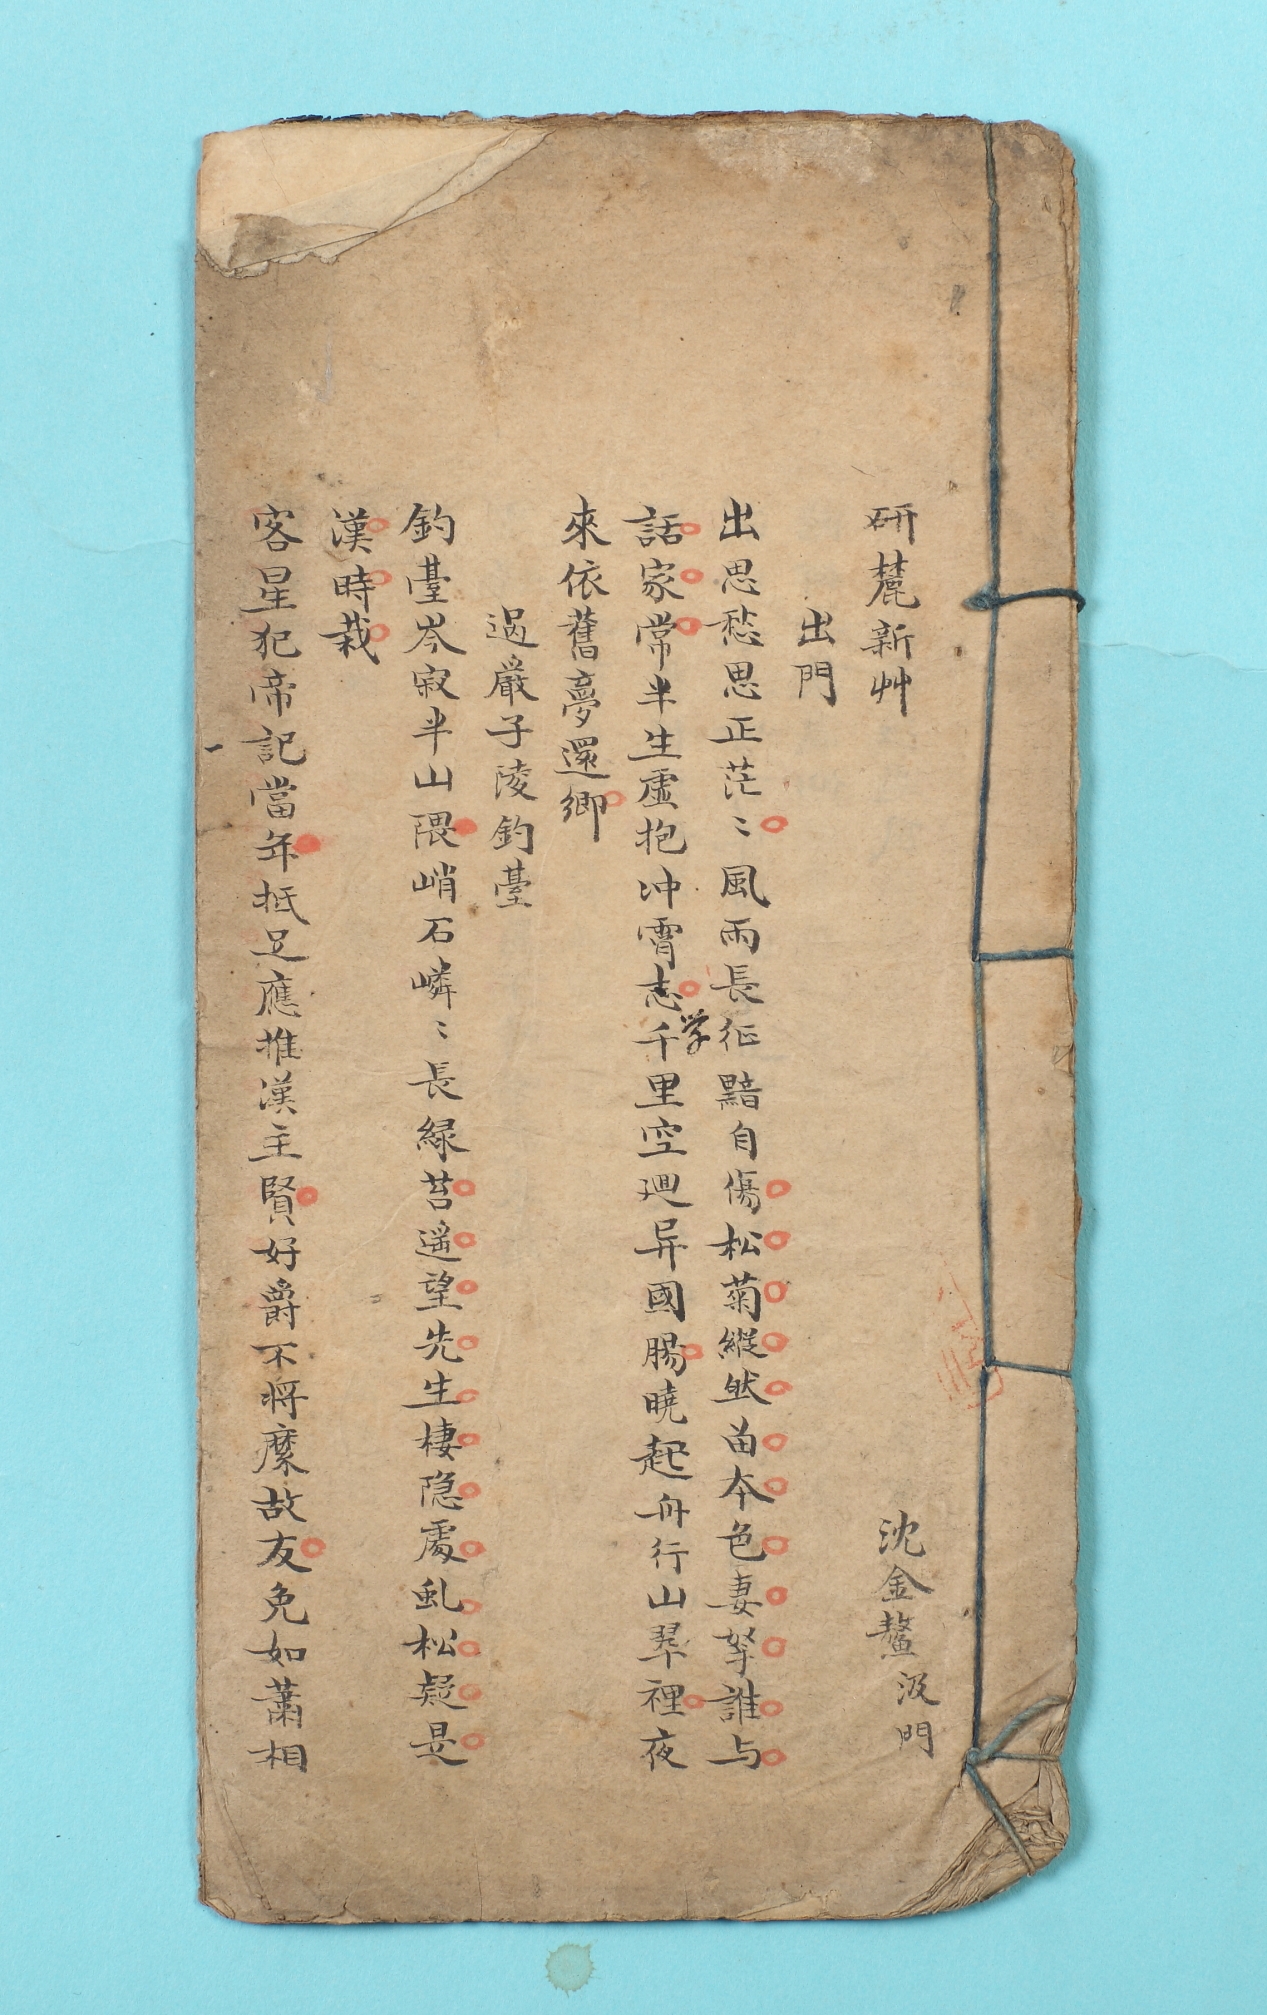 研麓新艸
沈金鰲汲門
出門
出思愁思正茫〻風雨長征黯自傷松菊縱然留本色妻孥誰与
話家常半生虛抱冲霄志千里空廻异國腸曉起舟行山翠裡夜
学
來依舊夢還鄉
過嚴子陵釣臺
釣臺岑寂半山隈峭石嶙〻長綠苔遥望先生棲隐處虬松疑是
漢時栽
客星犯帝記當年抵足應推漢主賢好爵不将縻故友免如蕭相